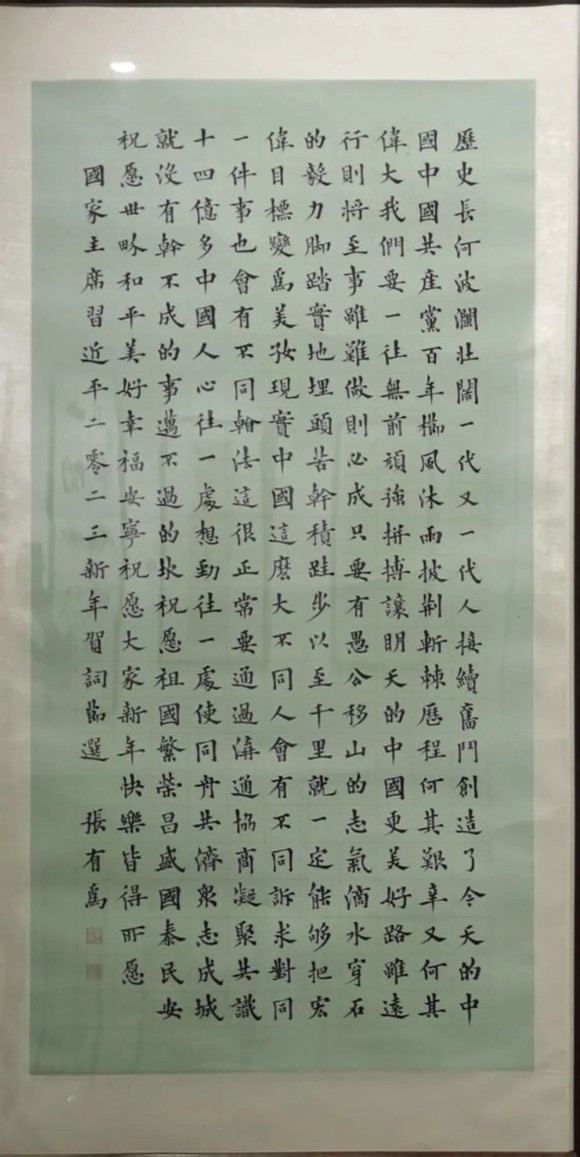 歷史長河波瀾壯闊一代又一代人接續奮鬥創造了今天的中
國中國共產黨百年櫛風沐雨披荊斬棘歷程何其艱辛又何其
偉大我們要一往無前頑強拼搏讓明天的中國更美好路雖遠
行則將至事雖難做則必成只要有愚公移山的志氣滴水穿石
的毅力脚踏實地埋頭苦幹積跬步以至千里就一定能够把宏
偉目標變爲美好現實中國這麽大不同人會有不同訴求對同
一件事也會有不同看法這很正常要通過溝通協商凝聚共識
十四億多中國人心往一處想勁往一處使同舟共濟衆志成城
就沒有幹不成的事邁不過的坎祝愿祖國繁榮昌盛國泰民安
祝愿世畍和平美好幸福安寧祝愿大家新年快樂皆得所愿
國家主席習近平二零二三新年賀詞節選 張有爲